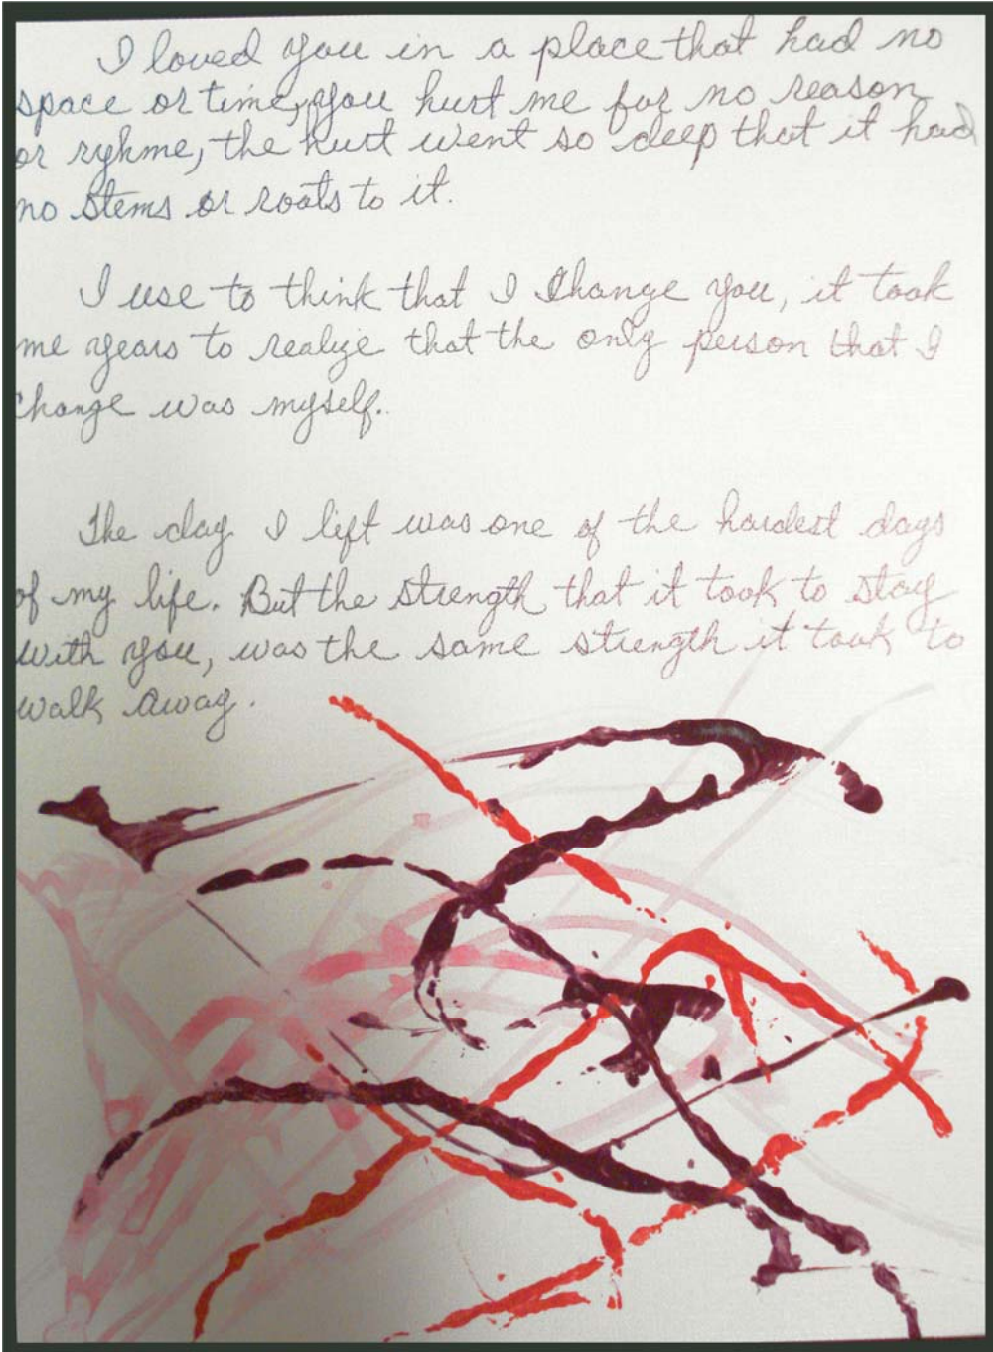 I loved you in a place that had no
space or time, you hurt me for no reason
or ryhme, the hurt went so deep that it had
no stems or roots to it.
I use to think that I change you, it took
me years to realize that the only person that I
change was myself.
The day I left was one of the hardest days
of my life. But the strength that it took to stay
with you, was the same strength it took to
walk away.